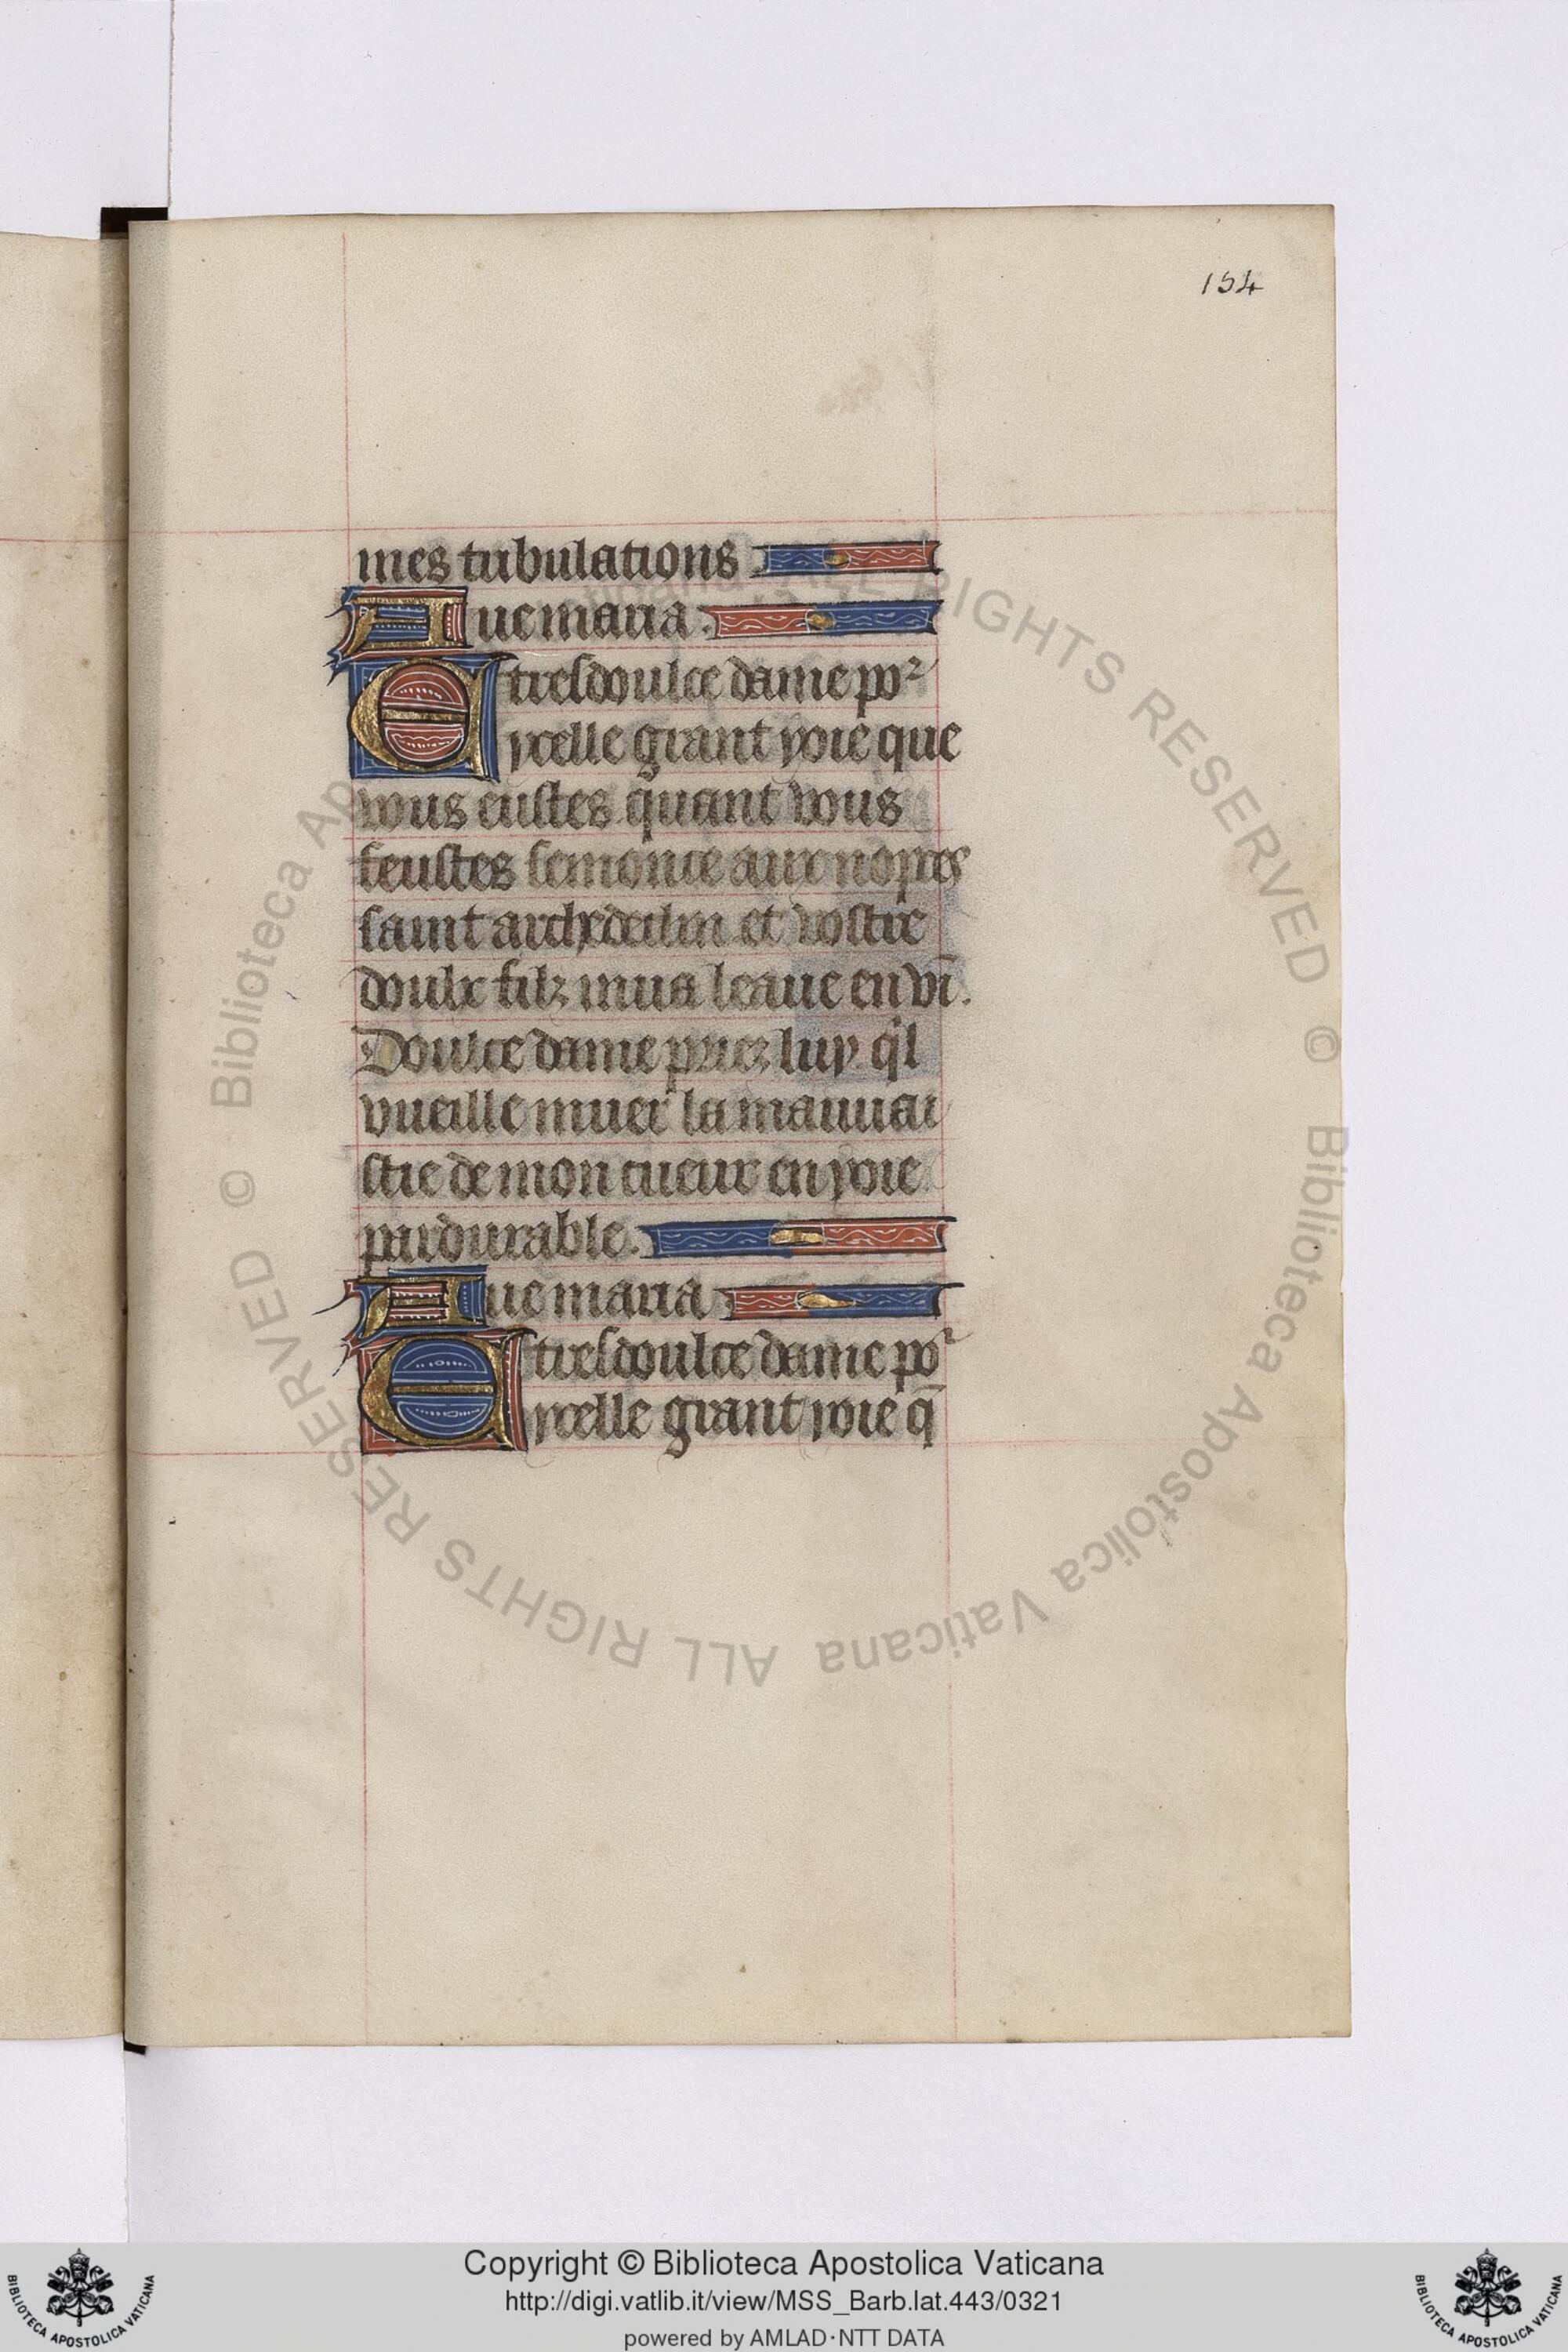 154
mes tribulations
Aue maria.
E tresdoulce dame poᷣ
ycelle grant yoie que
vous eustes quant vous
feustes semonce aux nopces
saint archedeclin et vostre
doulx filz mua leaue en vī.
Doulce dame priez luy q'l
vueille muer la mauuai
stie de mon cueur en yoie
pardurable.
Aue maria
E tresdoulce dame poᷣ
ycelle grant yoie q̄
© Biblioteca Apostolica Vaticana ALL RIGHTS RESERVED
© Biblioteca Apostolica Vaticana ALL RIGHTS RESERVED
Copyright © Biblioteca Apostolica Vaticana
http://digi.vatlib.it/view/MSS_Barb.lat.443/0321
powered by AMLAD·NTT DATA
BIBLIOTECA APOSTOLICA VATICANA
BIBLIOTECA APOSTOLICA VATICANA